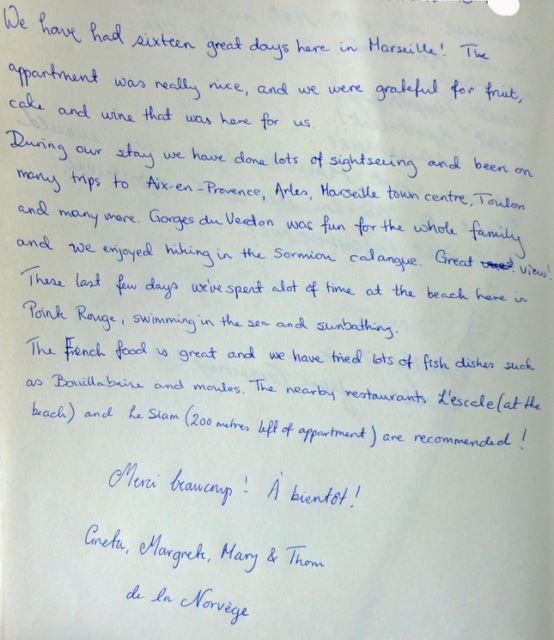 We have had sixteen great days here in Marseille! The
appartment was really nice, and we were grateful for fruit,
cake and wine that was here for us.
During our stay we have done lots of sightseeing and been on
many trips to Aix-en-Provence, Arles, Marseille town centre, Toulon
and many more. Gorges du Verdon was fun for the whole family
and we enjoyed hiking in the Sormion calanque. Great view!
These last few days we've spent alot of time at the beach here in
Point Rouge, swimming in the sea and sunbathing.
The French food is great and we have tried lots of fish dishes such
as Bouillabaise and moules. The nearby restaurants L'escale (at the
beach) and Le Siam (200 metres left of appartment) are recommended!
Merci beaucoup! À bientôt!
Greta, Margreth, Mary & Thom
de la Norvège